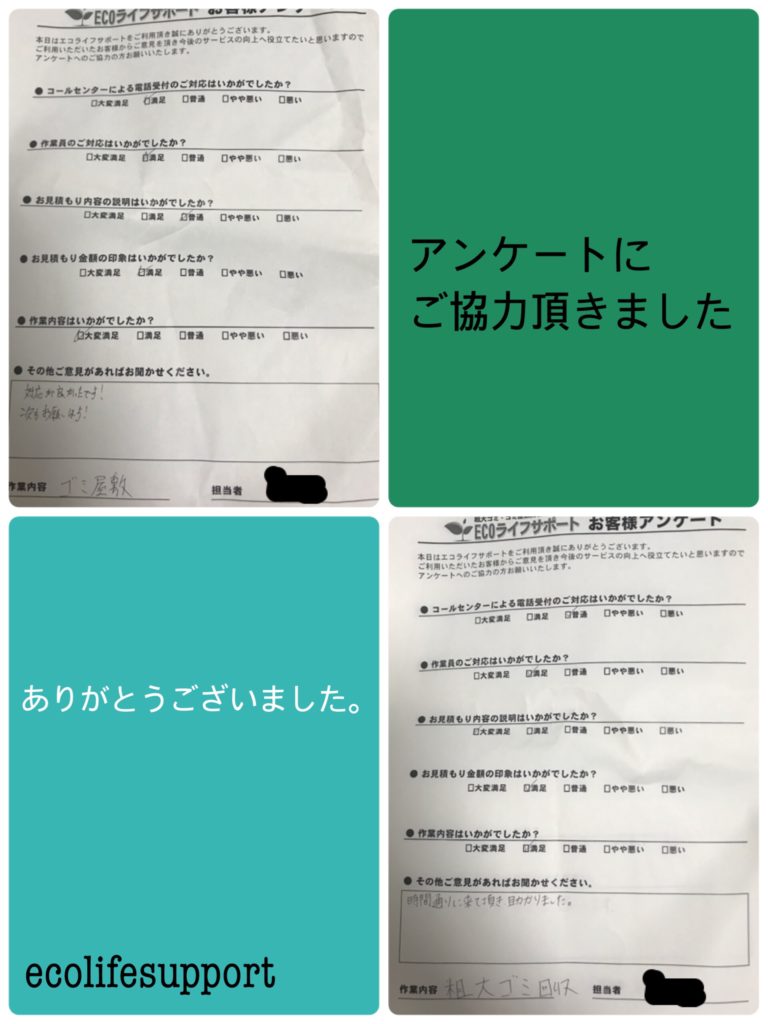 ECOライフサポート お客様アンケート
本日はエコライフサポートをご利用頂き誠にありがとうございます。
ご利用いただいたお客様からご意見を頂き今後のサービスの向上へ役立てたいと思いますので
アンケートへのご協力の方お願いいたします。
● コールセンターによる電話受付のご対応はいかがでしたか?
□大変満足 ☑満足 □普通 □やや悪い □悪い
● 作業員のご対応はいかがでしたか?
□大変満足 ☑満足 □普通 □やや悪い □悪い
● お見積もり内容の説明はいかがでしたか?
□大変満足 □満足 ☑普通 □やや悪い □悪い
● お見積もり金額の印象はいかがでしたか?
□大変満足 ☑満足 □普通 □やや悪い □悪い
● 作業内容はいかがでしたか?
☑大変満足 □満足 □普通 □やや悪い □悪い
● その他ご意見があればお聞かせください。
対応が良かったです!
次もお願いします!
作業内容 ゴミ屋敷 担当者
アンケートに
ご協力頂きました
ありがとうございました。
ecolifesupport
ECOライフサポート お客様アンケート
本日はエコライフサポートをご利用頂き誠にありがとうございます。
ご利用いただいたお客様からご意見を頂き今後のサービスの向上へ役立てたいと思いますので
アンケートへのご協力の方お願いいたします。
● コールセンターによる電話受付のご対応はいかがでしたか?
□大変満足 □満足 ☑普通 □やや悪い □悪い
● 作業員のご対応はいかがでしたか?
□大変満足 ☑満足 □普通 □やや悪い □悪い
● お見積もり内容の説明はいかがでしたか?
□大変満足 ☑満足 □普通 □やや悪い □悪い
● お見積もり金額の印象はいかがでしたか?
□大変満足 ☑満足 □普通 □やや悪い □悪い
● 作業内容はいかがでしたか?
□大変満足 ☑満足 □普通 □やや悪い □悪い
● その他ご意見があればお聞かせください。
時間通りに来て頂き助かりました。
作業内容 粗大ゴミ回収 担当者